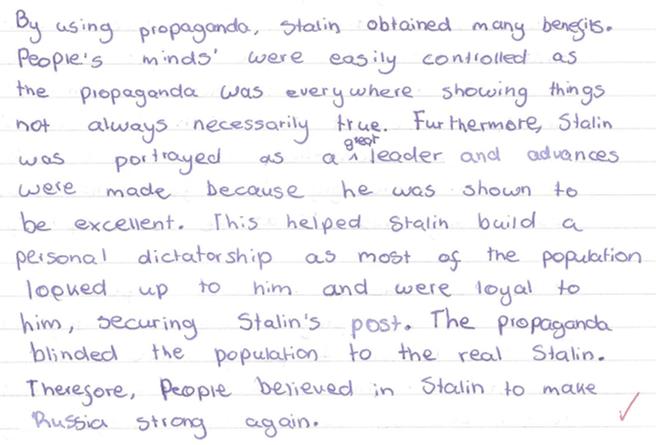 By using propaganda, Stalin obtained many benefits.
People's minds' were easily controlled as
the propaganda was everywhere showing things
not always necessarily true. Furthermore, Stalin
was portrayed as a great leader and advances
were made because he was shown to
be excellent. This helped Stalin build a
personal dictatorship as most of the population
looked up to him and were loyal to
him, securing Stalin's post. The propaganda
blinded the population to the real Stalin.
Therefore, People believed in Stalin to make
Russia strong again.